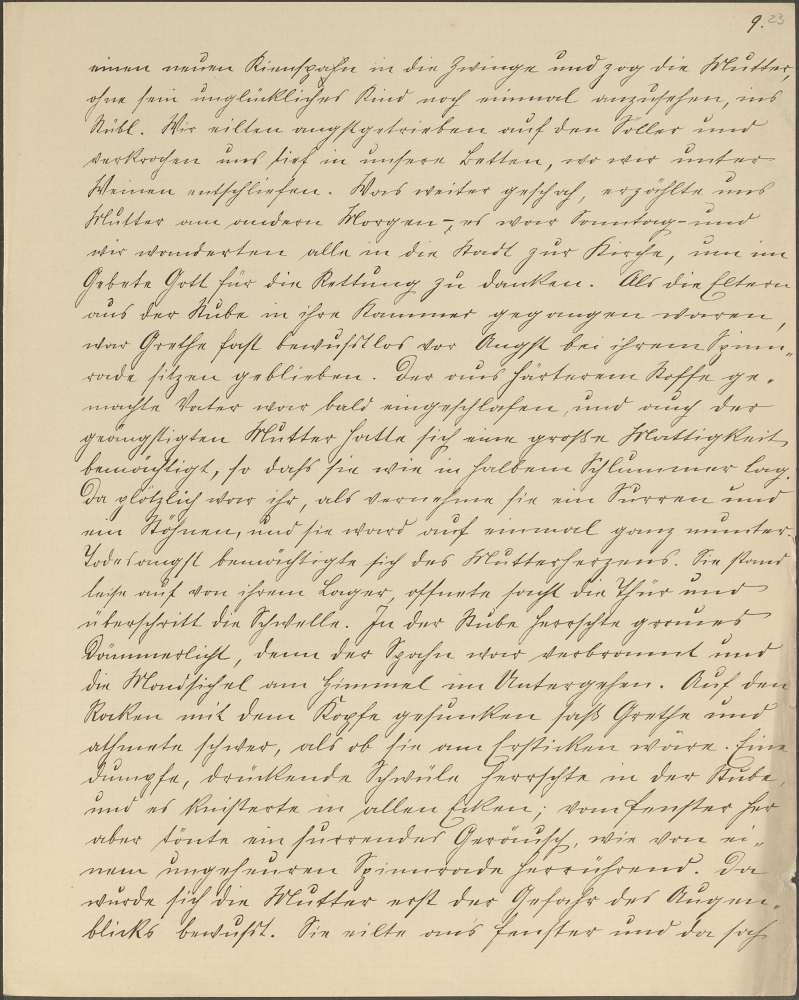 9. 23
einen neuen Kienspahn in die Zwinge und zog die Mutter,
ohne sein unglückliches Kind noch einmal anzusehen, ins
Stübl. Wir eilten angstgetrieben auf den Söller und
verkrochen uns tief in unsere Betten, wo wir unter
Weinen entschliefen. Was weiter geschah, erzählte uns
Mutter am andern Morgen –, es war Sonntag – und
wir wanderten alle in die Stadt zur Kirche, um im
Gebete Gott für die Rettung zu danken. Als die Eltern
aus der Stube in ihre Kammer gegangen waren,
war Grethe fast bewußtlos vor Angst bei ihrem Spinn-
rade sitzen geblieben. Der aus härterem Stoffe ge-
machte Vater war bald eingeschlafen, und auch der
geängstigten Mutter hatte sich eine große Mattigkeit
bemächtigt, so daß sie wie in halbem Schlummer lag.
Da plötzlich war ihr, als vernehme sie ein Surren und
ein Stöhnen, und sie ward auf einmal ganz munter.
Todesangst bemächtigte sich des Mutterherzens. Sie stand
leise auf von ihrem Lager, öffnete sacht die Thür und
überschritt die Schwelle. In der Stube herrschte graues
Dämmerlicht, denn der Spahn war verbrannt und
die Mondsichel am Himmel im Untergehen. Auf den
Rocken mit dem Kopfe gesunken saß Grethe und
athmete schwer, als ob sie am Ersticken wäre. Eine
dumpfe, drückende Schwüle herrschte in der Stube,
und es knisterte in allen Ecken; vom Fenster her
aber tönte ein surrendes Geräusch, wie von ei-
nem ungeheuren Spinnrade herrührend. Da
wurde sich die Mutter erst der Gefahr des Augen-
blicks bewußt. Sie eilte ans Fenster und da sah